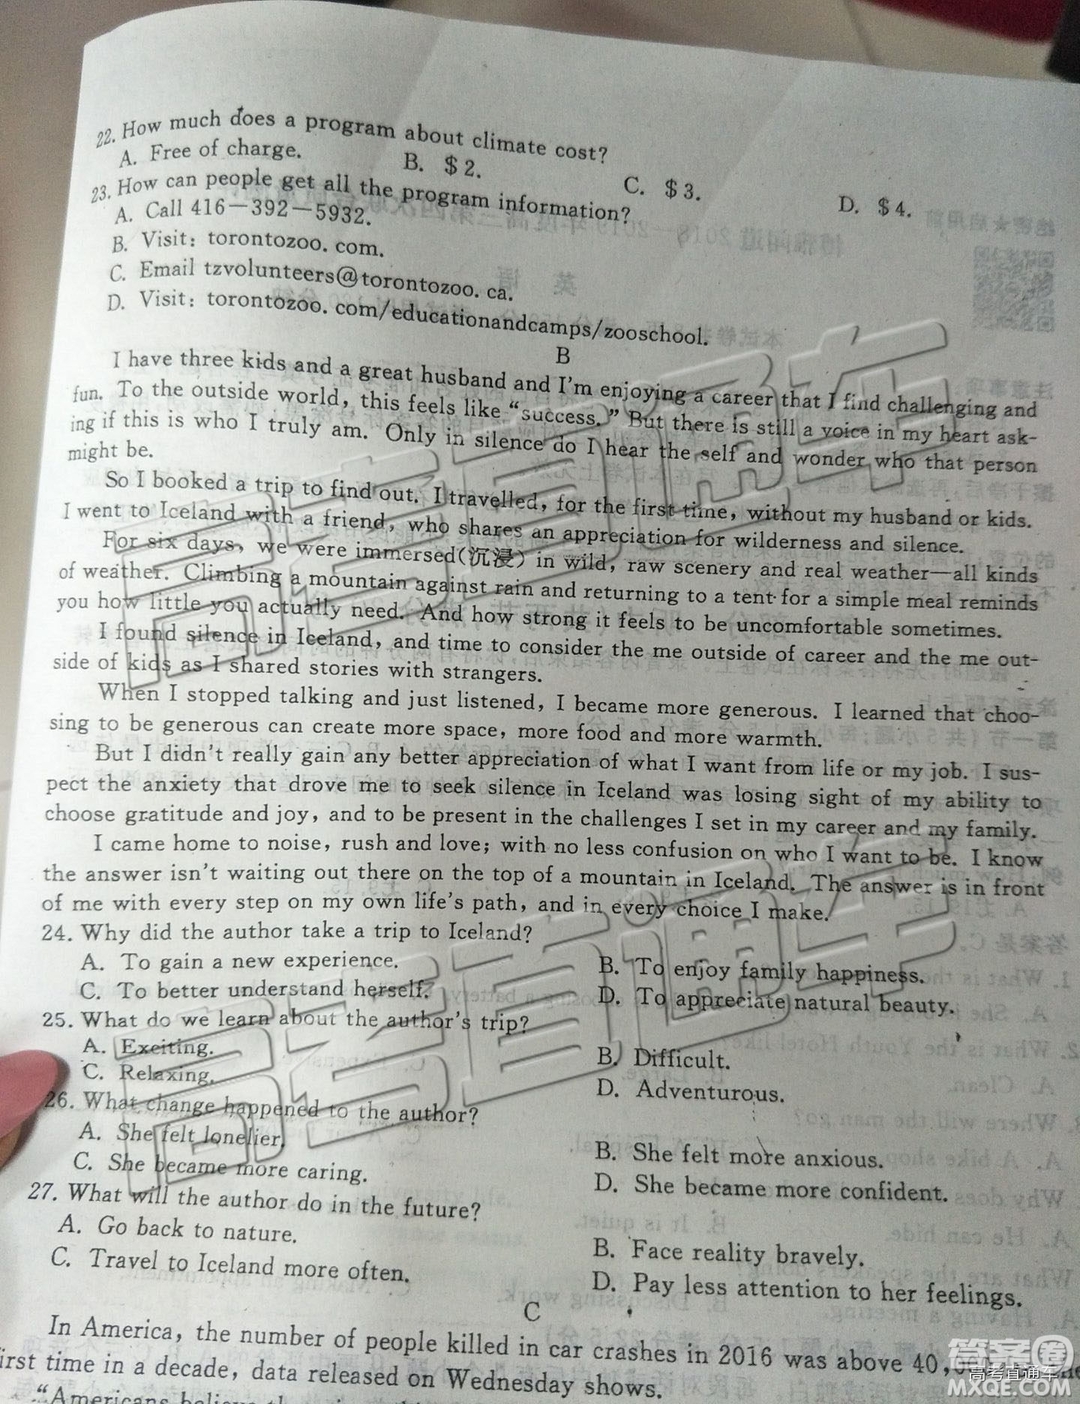 22. How much does a program about climate cost?
A. Free of charge.
B. $ 2.
C. $ 3.
D. $ 4.
23. How can people get all the program information?
A. Call 416-392-5932.
B. Visit: torontozoo. com.
C. Email tzvolunteers@torontozoo. ca.
D. Visit: torontozoo. com/educationandcamps/zooschool.
B
I have three kids and a great husband and I'm enjoying a career that I find challenging and
fun. To the outside world, this feels like "success." But there is still a voice in my heart ask-
ing if this is who I truly am. Only in silence do I hear the self and wonder who that person
might be.
So I booked a trip to find out. I travelled, for the first time, without my husband or kids.
I went to Iceland with a friend, who shares an appreciation for wilderness and silence.
For six days, we were immersed(沉浸) in wild, raw scenery and real weather—all kinds
of weather. Climbing a mountain against rain and returning to a tent for a simple meal reminds
you how little you actually need. And how strong it feels to be uncomfortable sometimes.
I found silence in Iceland, and time to consider the me outside of career and the me out-
side of kids as I shared stories with strangers.
When I stopped talking and just listened, I became more generous. I learned that choo-
sing to be generous can create more space, more food and more warmth.
But I didn't really gain any better appreciation of what I want from life or my job. I sus-
pect the anxiety that drove me to seek silence in Iceland was losing sight of my ability to
choose gratitude and joy, and to be present in the challenges I set in my career and my family.
I came home to noise, rush and love; with no less confusion on who I want to be. I know
the answer isn't waiting out there on the top of a mountain in Iceland. The answer is in front
of me with every step on my own life's path, and in every choice I make.
24. Why did the author take a trip to Iceland?
A. To gain a new experience.
B. To enjoy family happiness.
C. To better understand herself.
D. To appreciate natural beauty.
25. What do we learn about the author's trip?
A. Exciting.
B. Difficult.
C. Relaxing.
D. Adventurous.
26. What change happened to the author?
A. She felt lonelier.
B. She felt more anxious.
C. She became more caring.
D. She became more confident.
27. What will the author do in the future?
A. Go back to nature.
B. Face reality bravely.
C. Travel to Iceland more often.
D. Pay less attention to her feelings.
C
In America, the number of people killed in car crashes in 2016 was above 40,
irst time in a decade, data released on Wednesday shows.
"Americans
高考直通车
高考直通车
答案圈
高考直通车
MXQE.COM